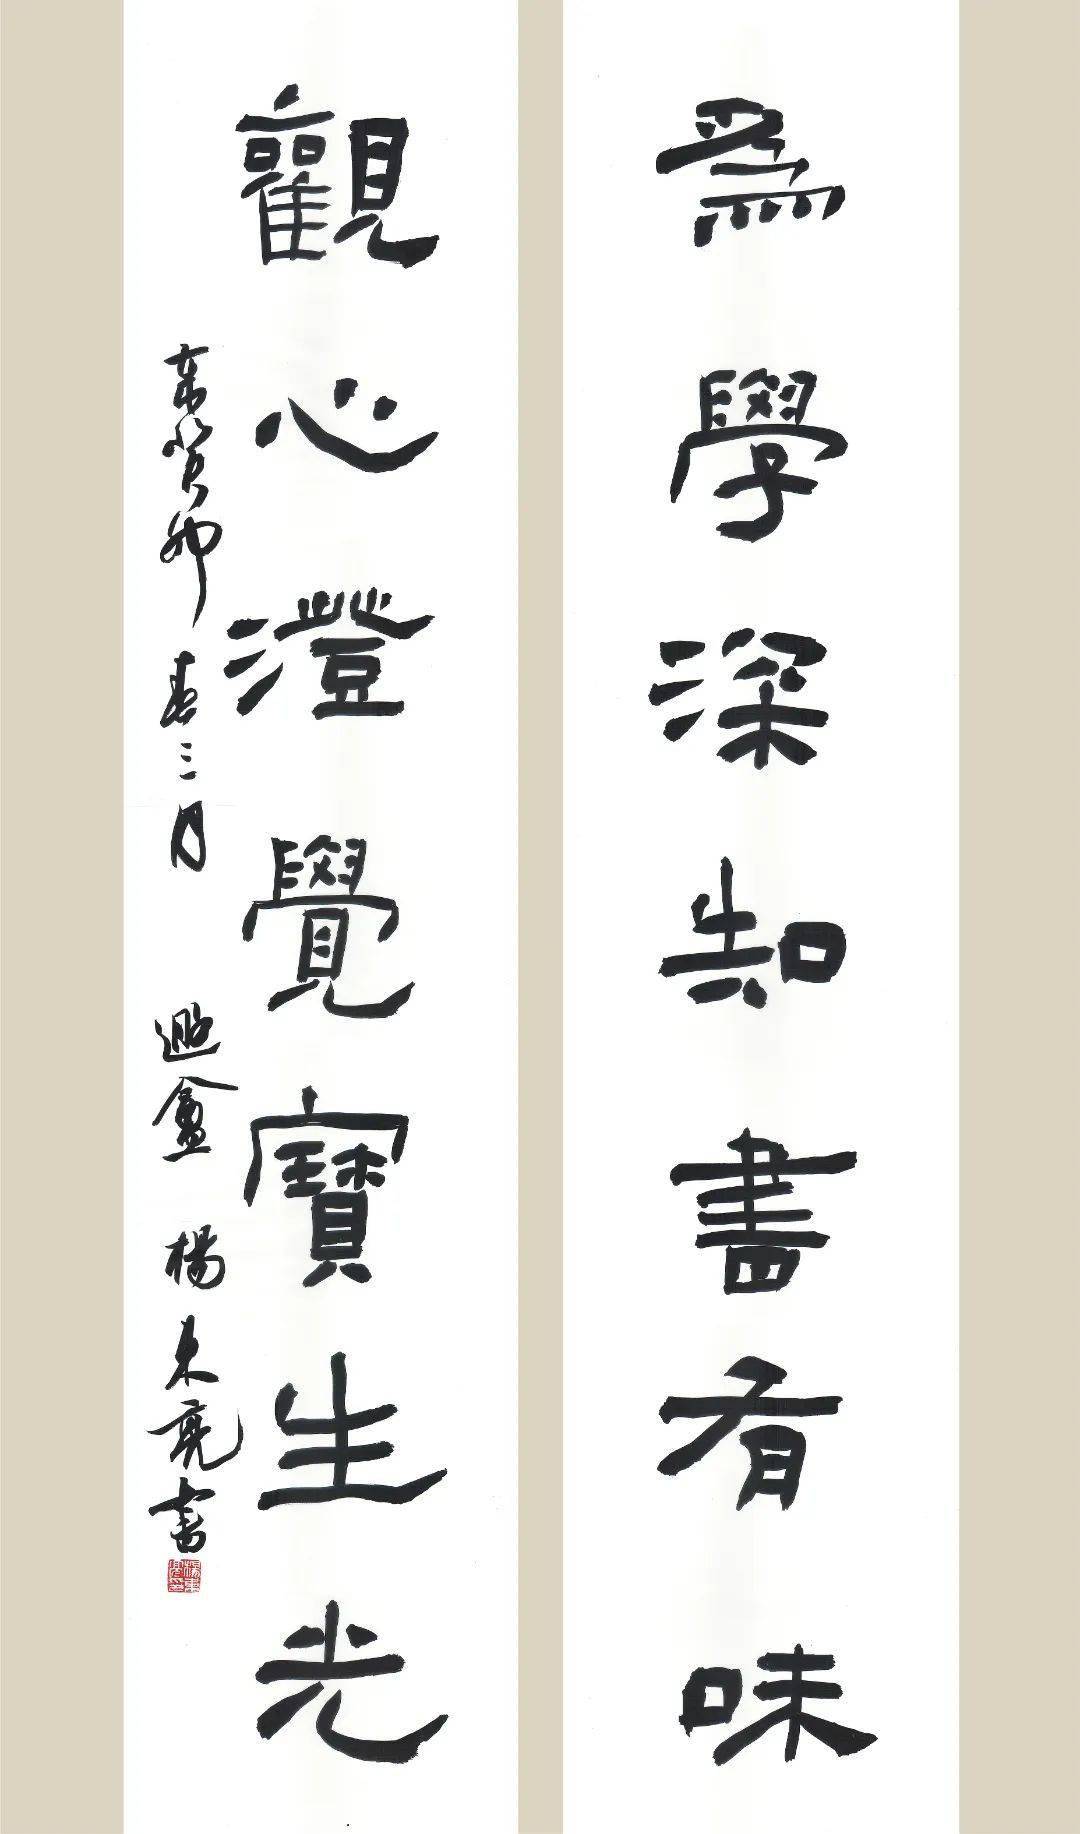 爲學深知書有味
觀心澄覺寶生光
癸卯春三月 盦 楊東亮書